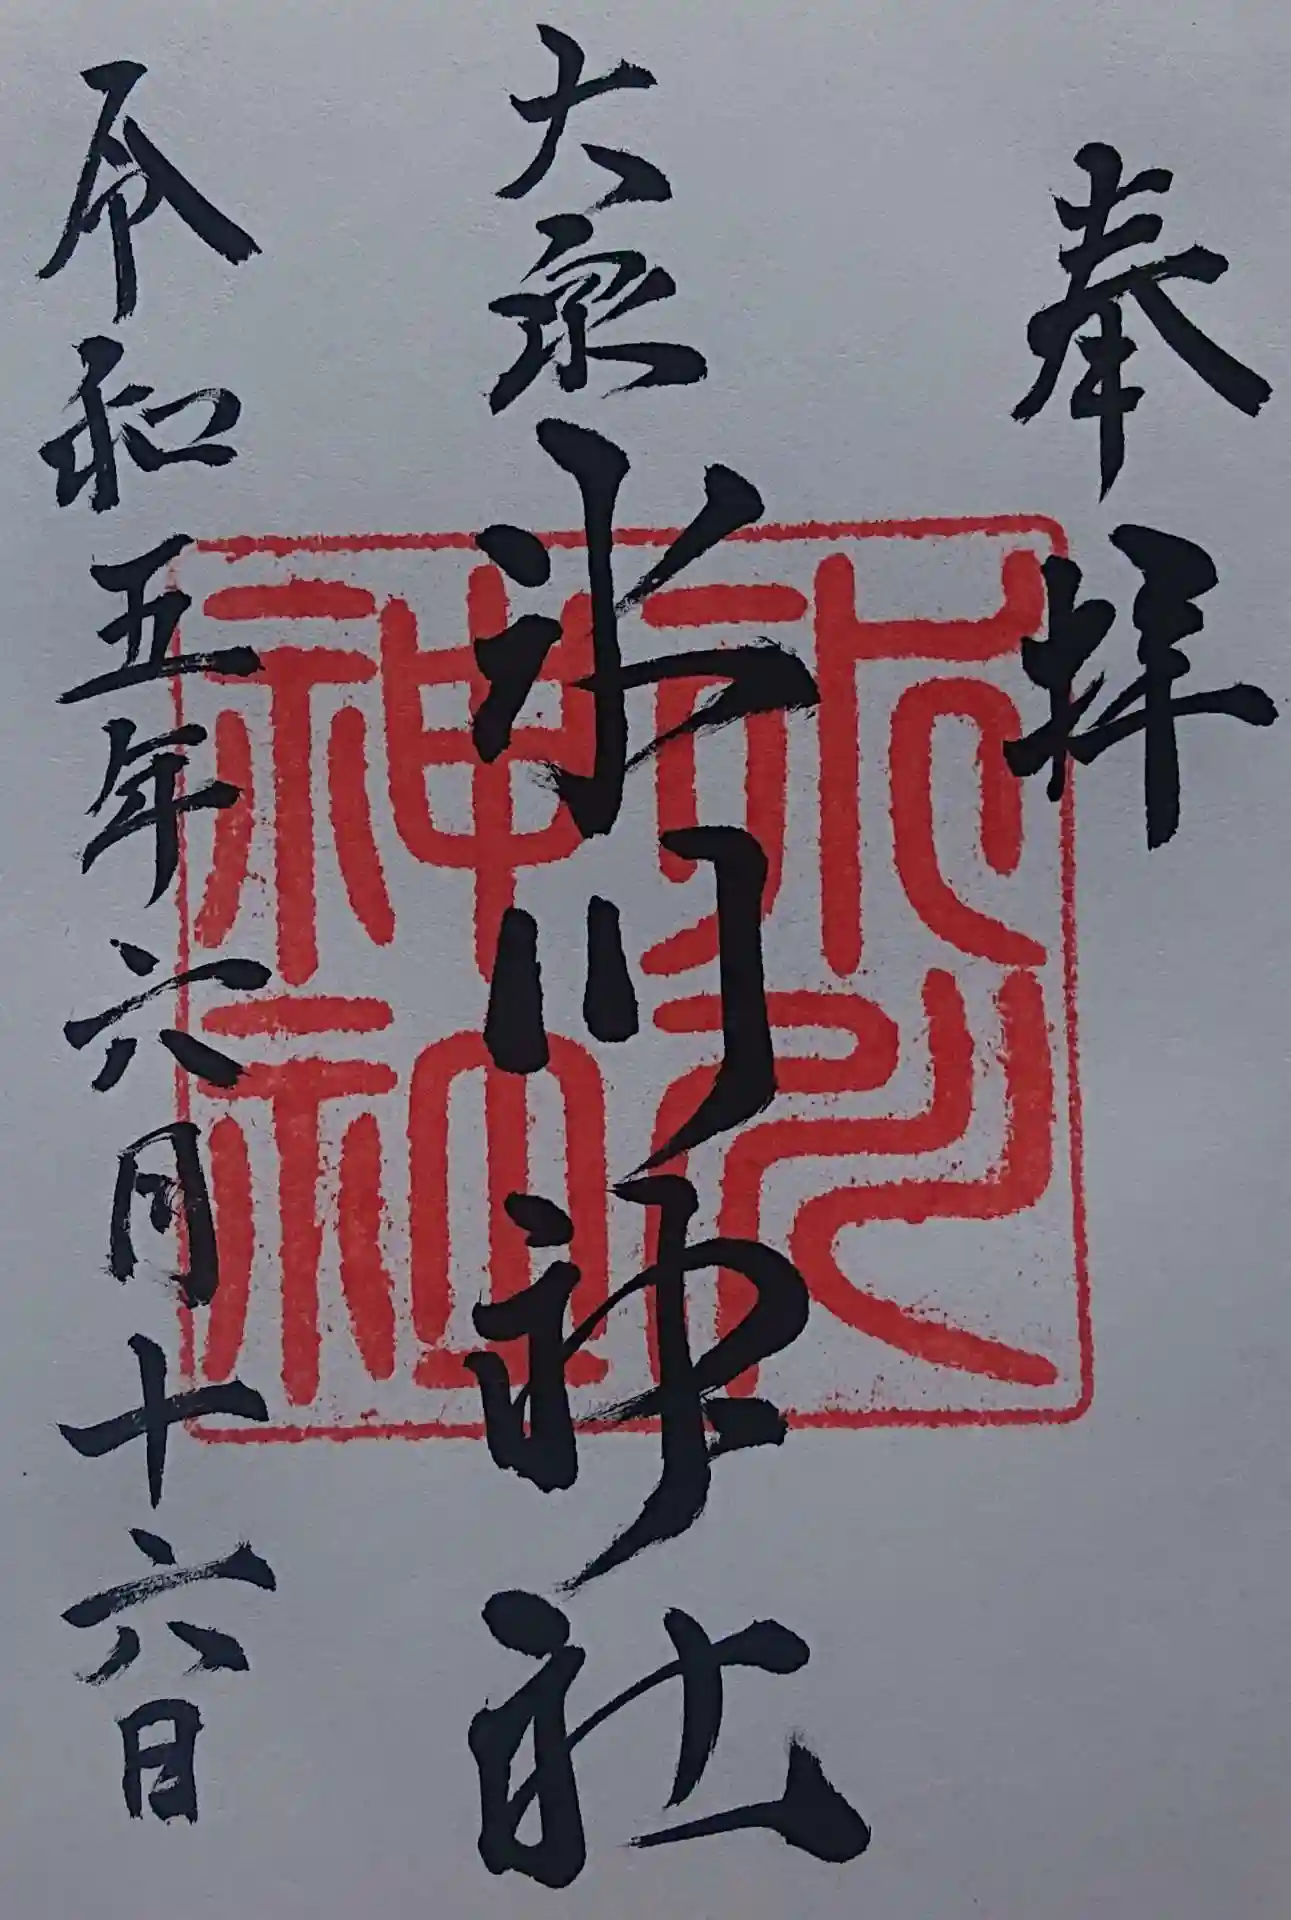 奉拝
大泉氷川神社
令和五年六月十六日
氷川
神社